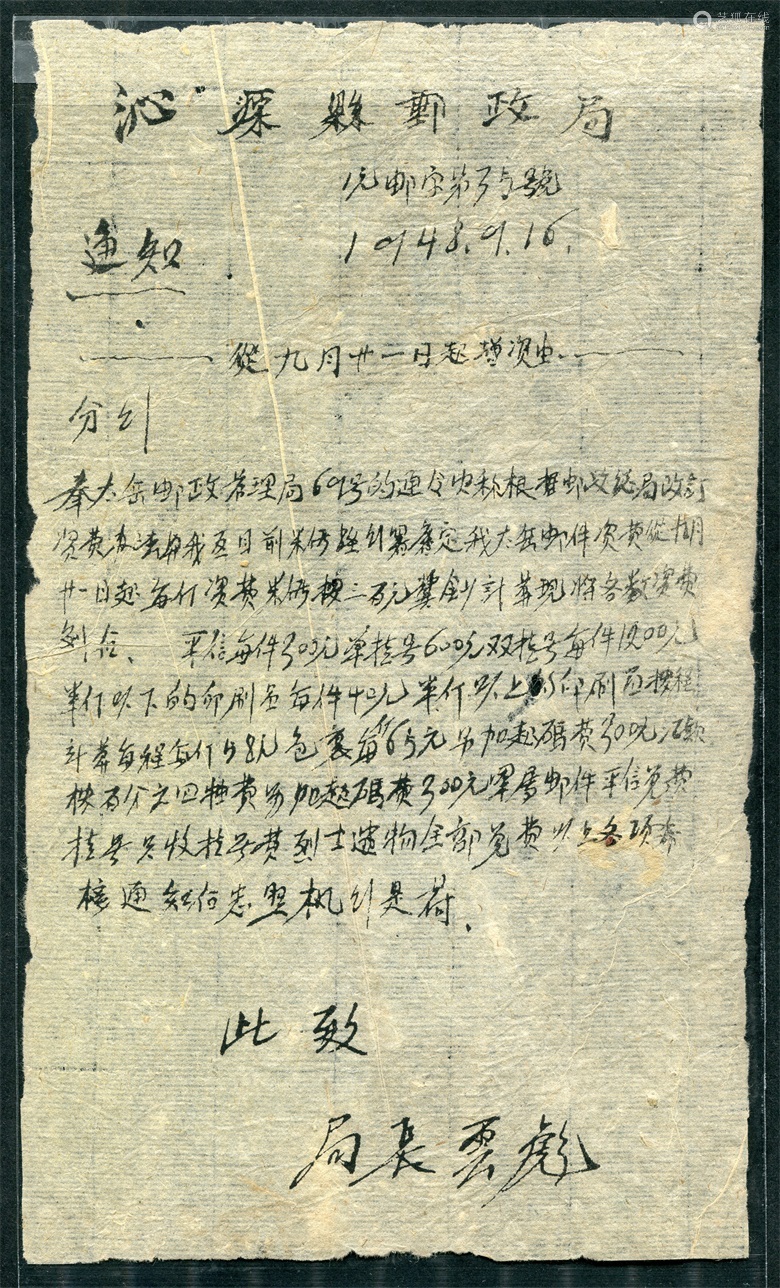 艺狐在线
沁源縣郵政局
沅邮字第 號
1948.9.16.
通知
從九月廿一日起增資由.
分别
奉太岳邮政管理局69号的通令内称根据邮政总局改訂
资费办法与我区目前米价 定我太岳邮件资费從九月
廿一日起每斤资费米价按三百元冀鈔計算现将各数资费
列后、 平信每件300元单挂号600元双挂号每件1200元
半斤以下的印刷品每件40元半斤以上的印刷品按程
計算每程每斤 8元包裹每 65元另加起碼费300元汇款
按百分之四 费另加起碼费300元军属邮件平信免费
挂号只收挂号费烈士遗物全部免费以上各项希
接通知后 是荷.
此致
局長雲彪